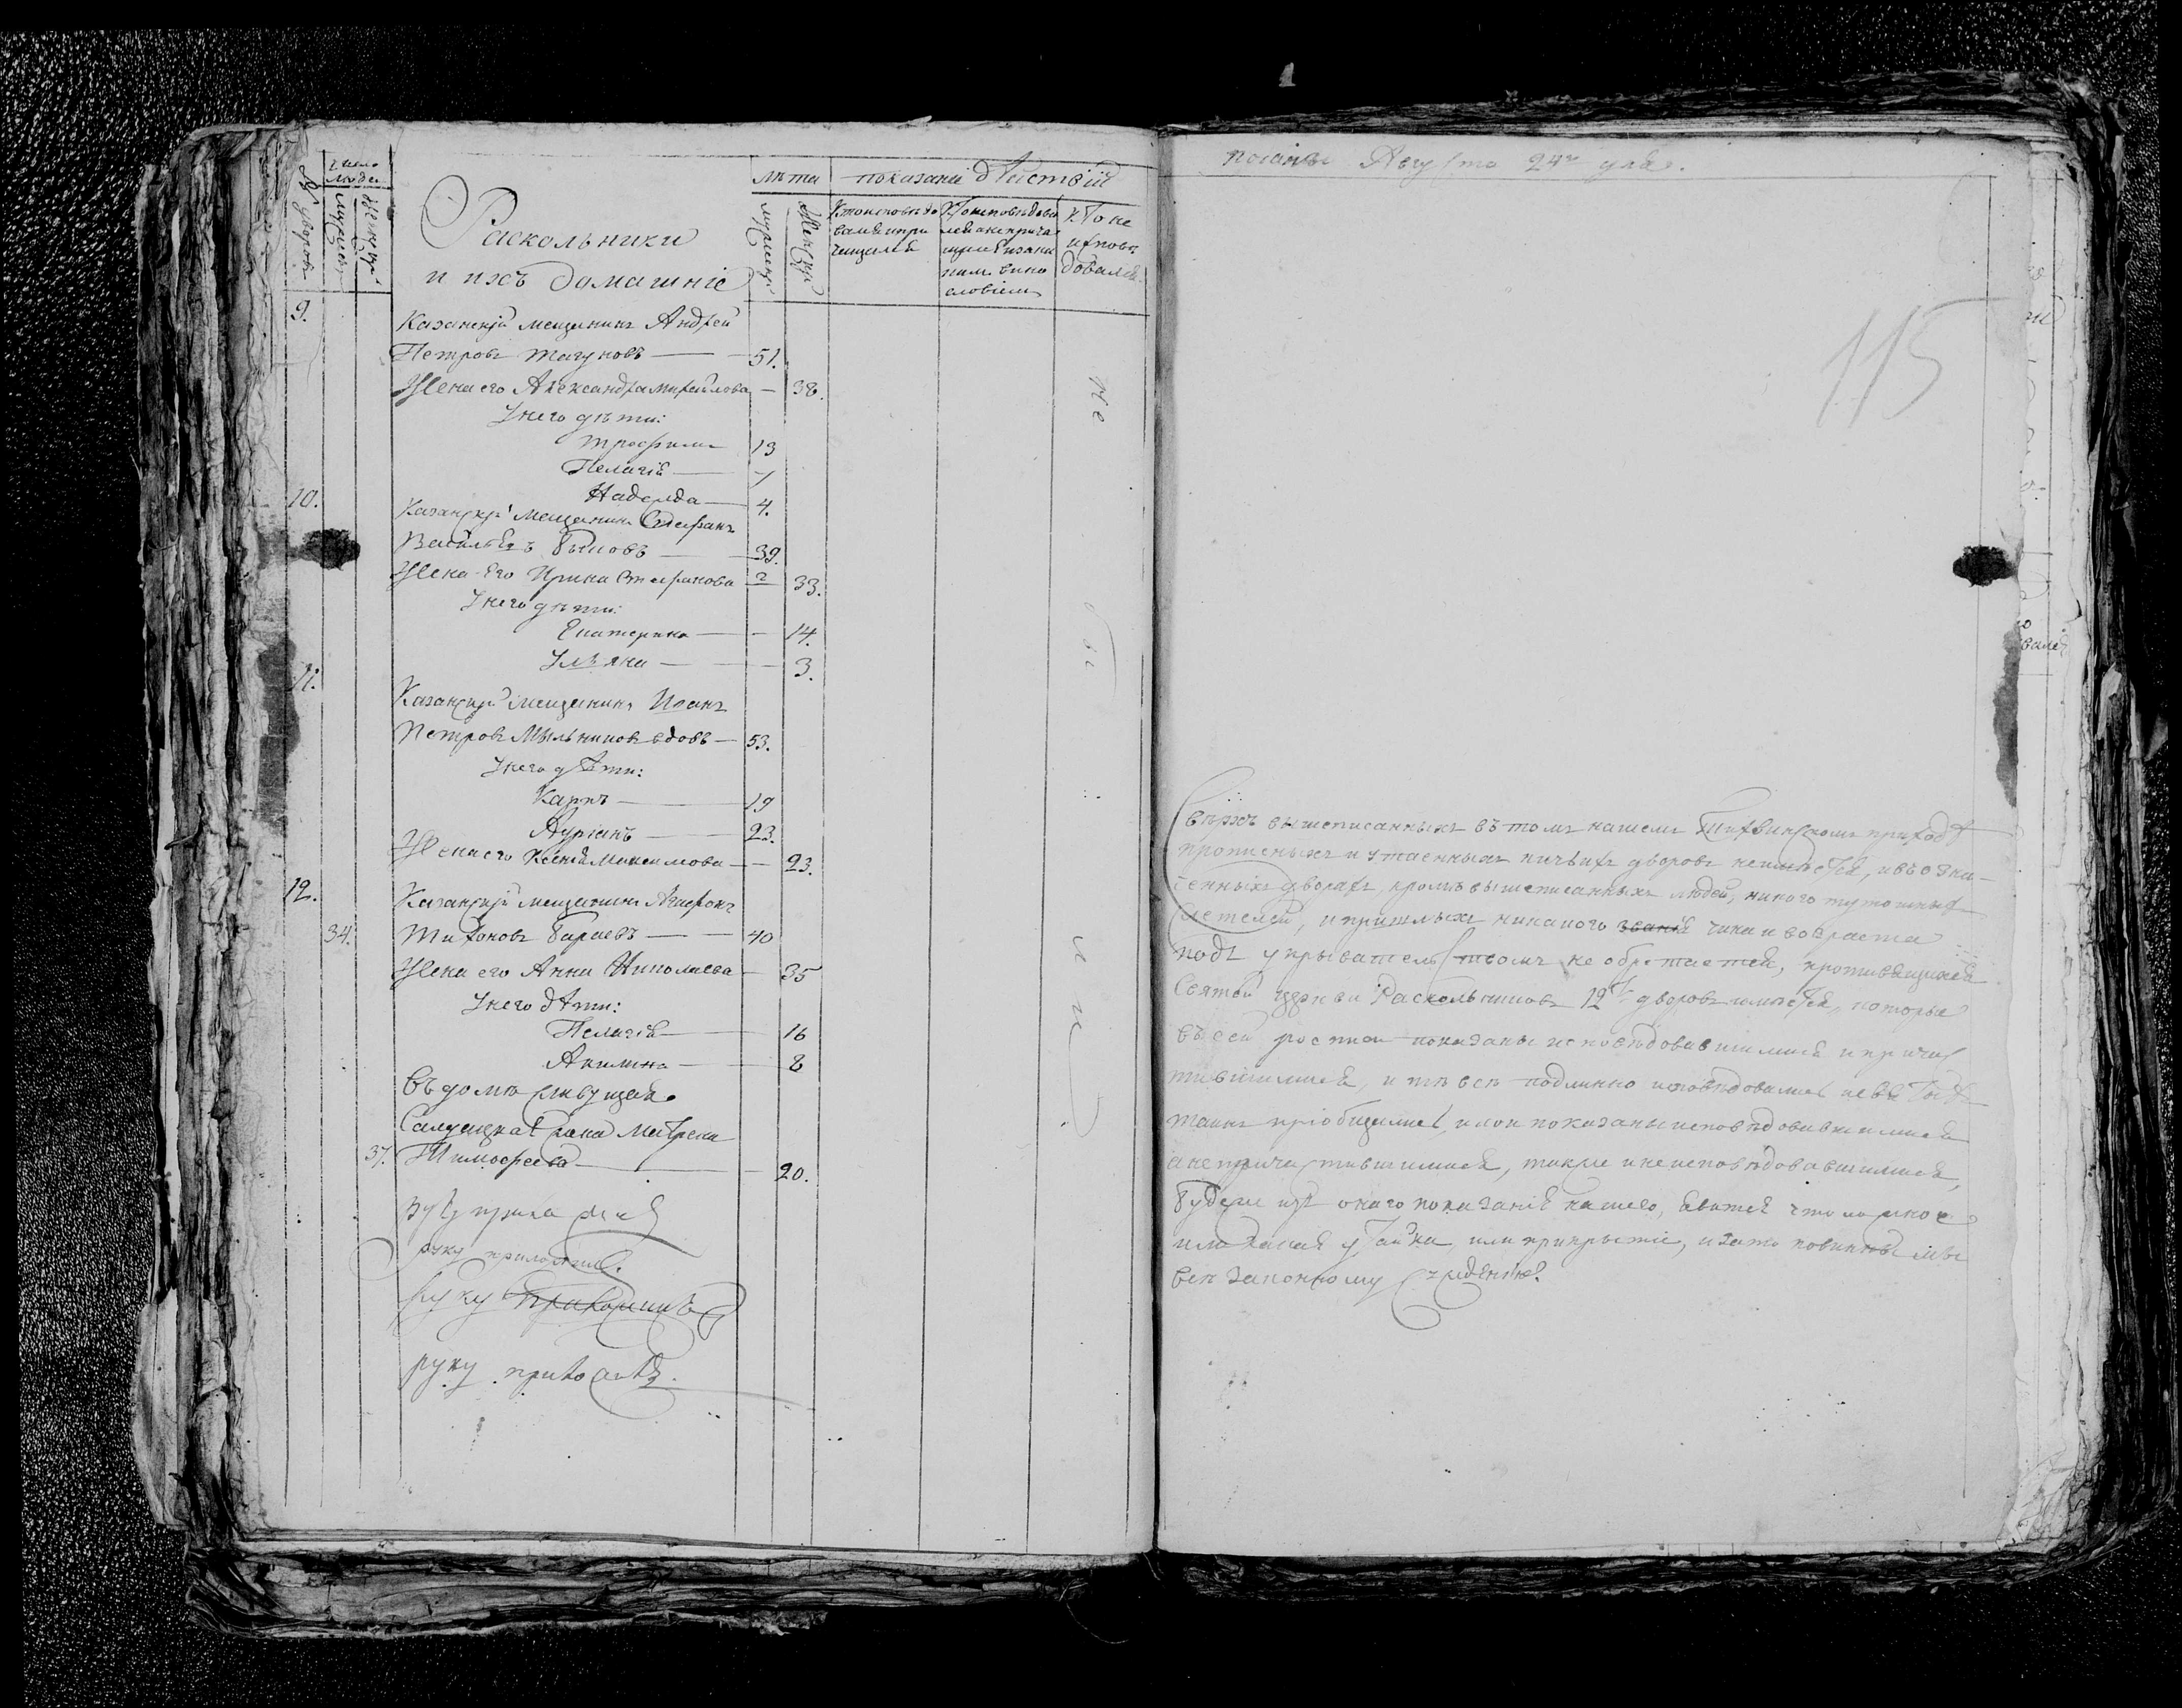 № дворовъ
число людей
мужескъ
женскъ
Раскольники
и ихъ домашніе
лѣта
показаніе дѣйствій
мужеска
женска
Кто исповѣдо
вался и при
чащался
Кто исповѣдова
лся а не прича
щался и за ка
кимъ вино
словіемъ
Кто не
исповѣ
довался
9.
Казанскій мещанинъ Андрей
Петровъ Тагуновъ — 51.
Жена его Александра Михайлова — 38.
У него дѣти:
Трофимъ 13
Пелагія — 7
Надежда — 4.
10.
Казанскій мещанинъ Стефанъ
Васильевъ Быковъ — 39.
Жена Его Ирина Стефанова 33.
У него дѣти:
Екатерина — 14.
Ульяна — 3.
11.
Казанскій мещанинъ Иванъ
Петровъ Мыльниковъ вдовъ — 53.
У него дѣти:
Карпъ — 19
Андріанъ — 23.
Жена его Ксенія Максимова — 23.
12.
Казанскій мещанинъ Агафонъ
34. Тихоновъ Бараевъ — 40
Жена его Анна Николаева — 35
У него дѣти:
Пелагія — 16
Акилина — 8
Въ домѣ живущая
Салдацкая жена Матрена
37. Тимофеева — 20.
руку
руку приложилъ.
руку
руку приложилъ.
не
бы
ли
поданы Августа 24го дня.
115
Сверхъ вышеписанныхъ въ томъ нашемъ Тихвинскомъ приходѣ
прописныхъ и утаенныхъ ничьихъ дворовъ неимѣется, и въ озна-
ченныхъ дворахъ, кромѣ вышеписанныхъ людей, никого тутошныхъ
жителей, и пришлыхъ никакого званія чина и возраста
подъ укрывательствомъ не обретается, противящихся
Святой церкви Раскольниковъ 12ть дворовъ имѣется, которые
въ сей росписи показаны исповѣдовавшимися и причас
тившимися, и тѣ всѣ подлинно исповѣдовались и святыхъ
таинъ пріобщались, и кои показаны исповѣдовавшимися
а не причастившимися, также и неисповѣдовавшимися,
буде же изъ онаго показанія нашего, явится что ложное
или какая утайка, или прикрытіе, и за то повинны мы
всѣ законному сужденію.